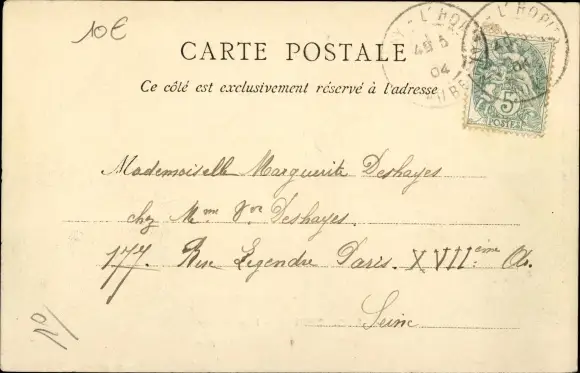 10€
CARTE POSTALE
Ce côté est exclusivement réservé à l'adresse
04
5
POSTES
Mademoiselle Marguerite Deshayes
chez Mme Vve Deshayes.
177. Rue Legendre Paris. XVIIème Ar.
Seine